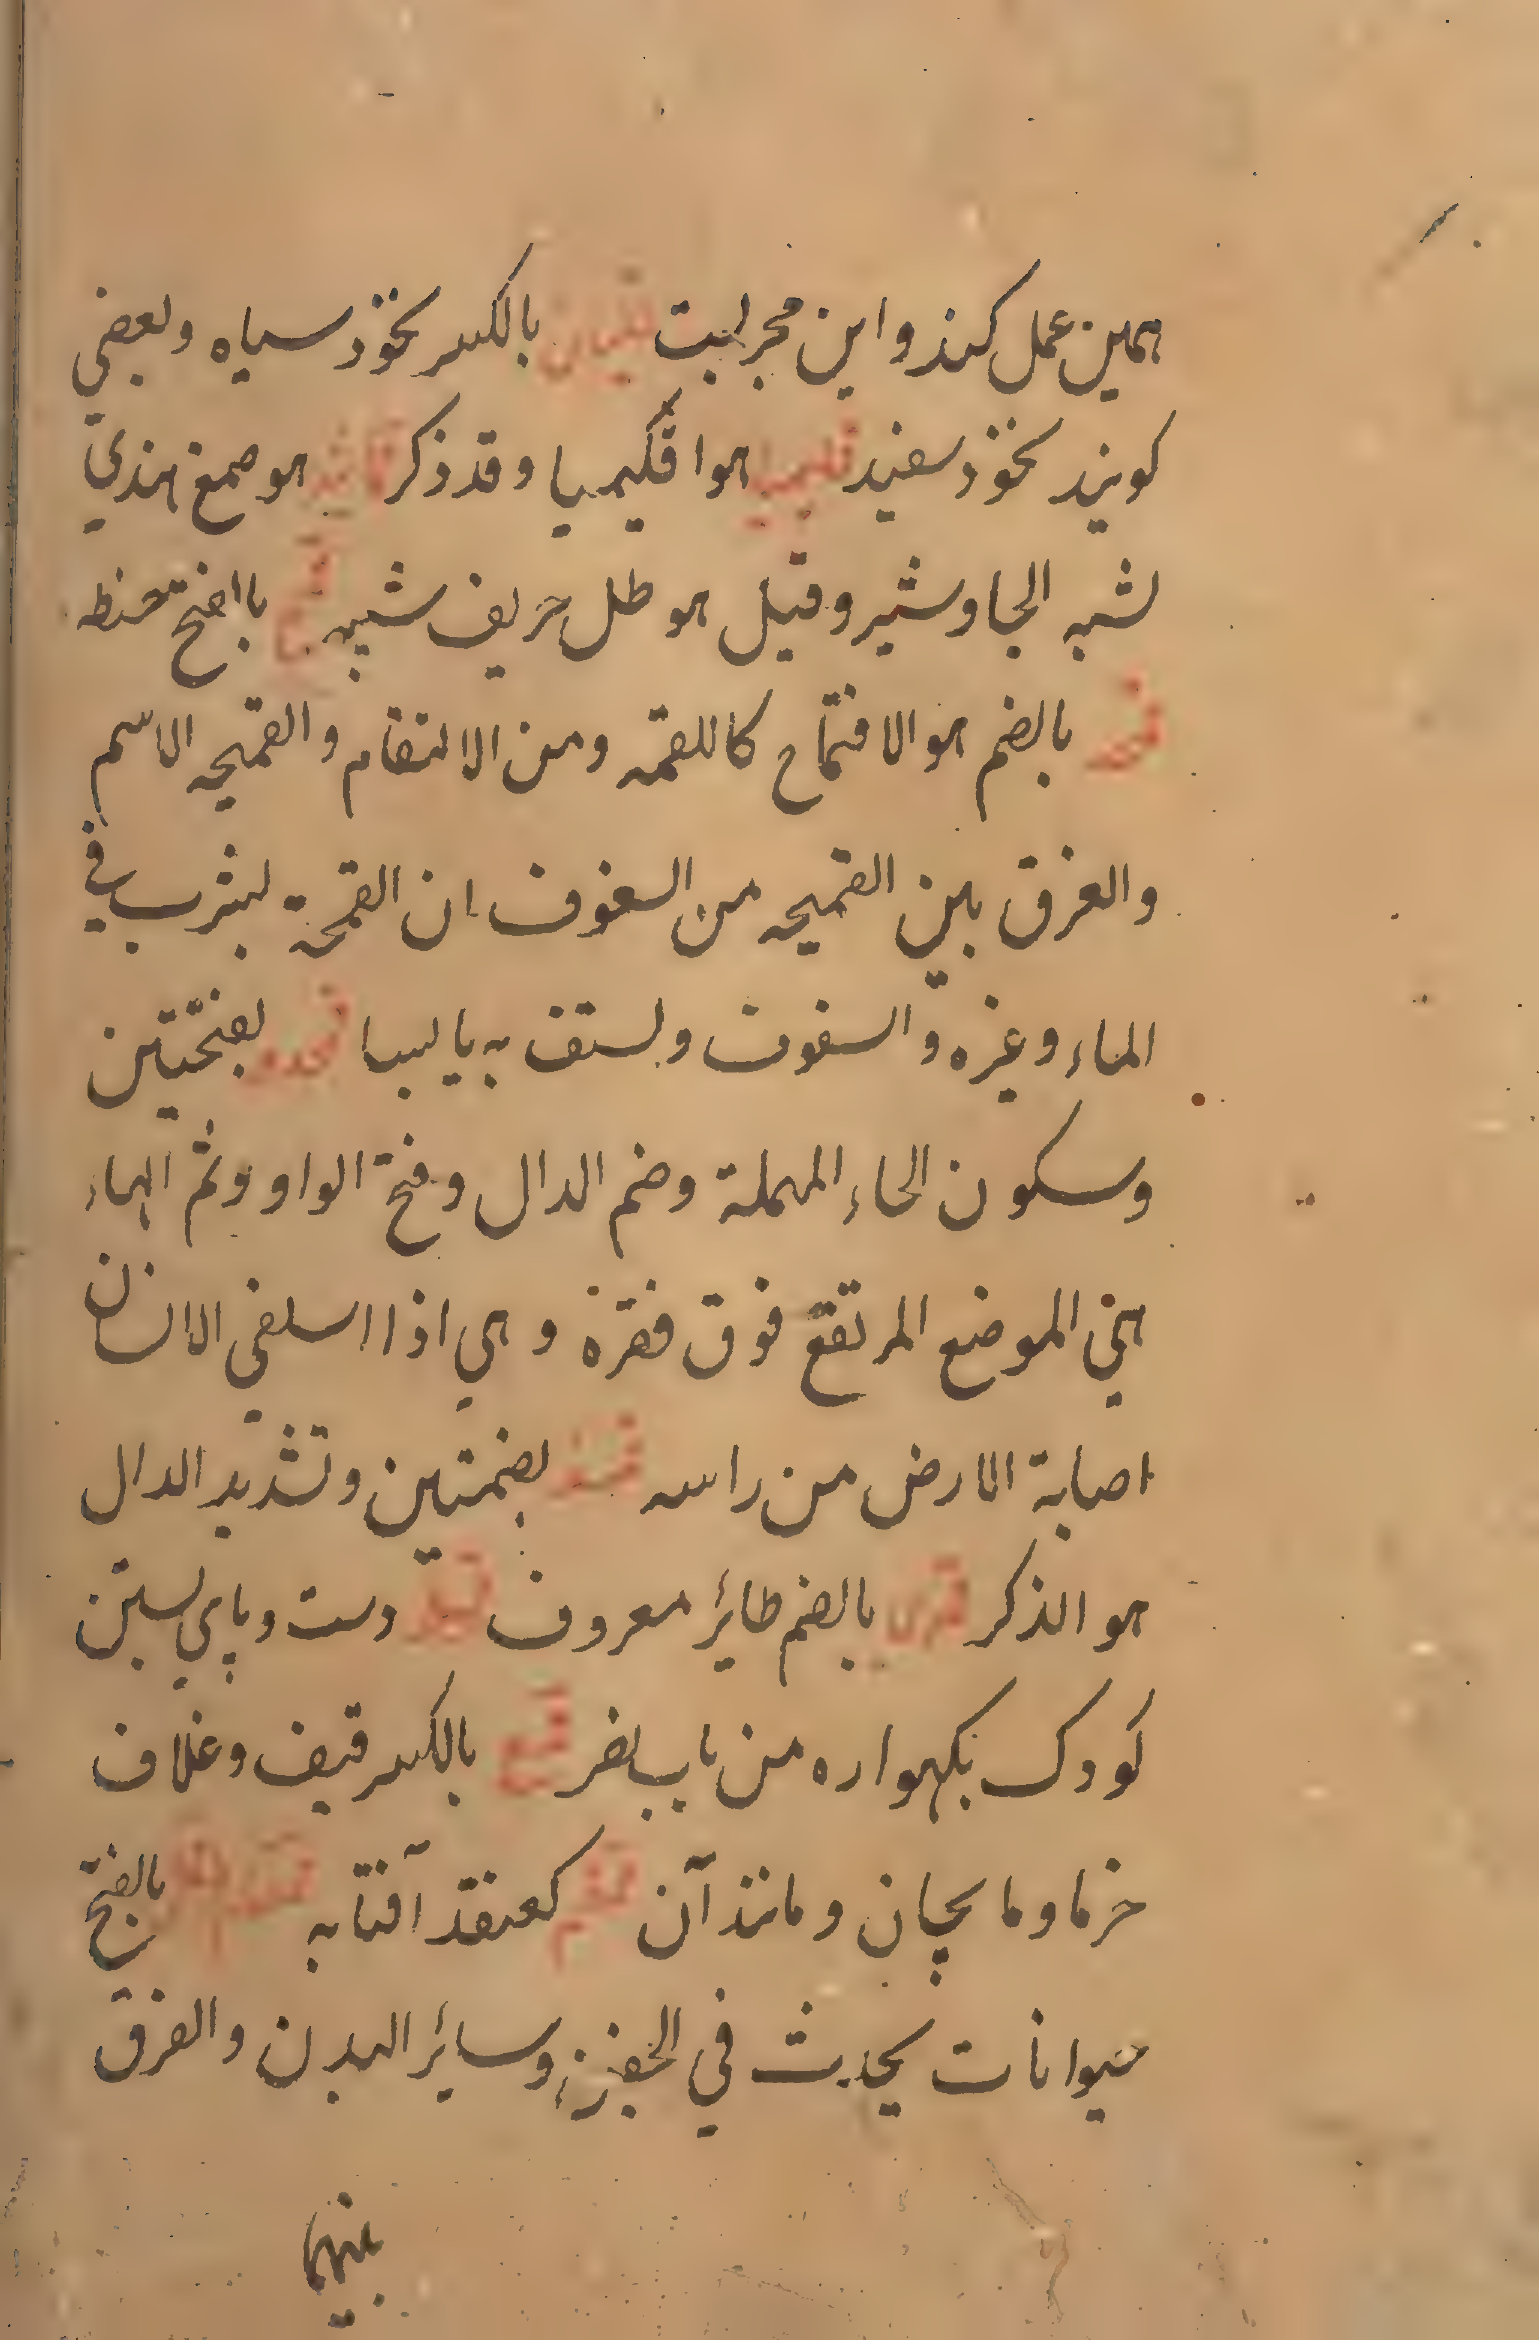 همین عمل کنند و این مجربست بالکسر نخود سیاه و بعضی
کویند نخود سفید قلیمیا هو اقلیمیا و قد ذکر هو صمغ هندی
یشبه الجاوشیر و قیل هو طل حریف شبیه قمح باالفتح حنطه
قمحه بالضم هو الاقتماح کاللقمه و من الالتقام و القمیحه الاسم
والفرق بین القمیحه من السفوف ان القمحة یشرب فی
الماء و غیره و السفوف و یستف به یابسا قمحدوه بفتحتین
و سکون الحاء المهملة و ضم الدال و فتح الواو و ثم الهاء
هی الموضع المرتفع فوق فقرة و هی اذا استلقی الانسان
اصابة الارض من راسه قمد بضمتین و تشدید الدال
هو الذکر قمری بالضم طایر معروف دست و پای بستن
کودک بکهواره من باب نصر قمع بالکسر قیف و غلاف
خرما و ما بچان و مانند آن قمقم کعنفذ آفتابه بالفتح
حیوانات یحدث فی الجفن و سایر البدن و الفرق
بینهما